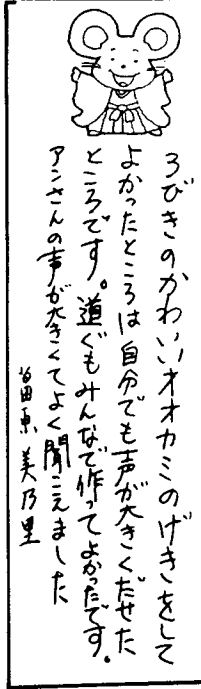 3びきのかわいいオオカミのげきをして
よかったところは自分でも声が大きくだせた
ところです。道ぐもみんなで作ってよかったです。
アンさんの声が大きくてよく聞こえました
富田原 美乃里